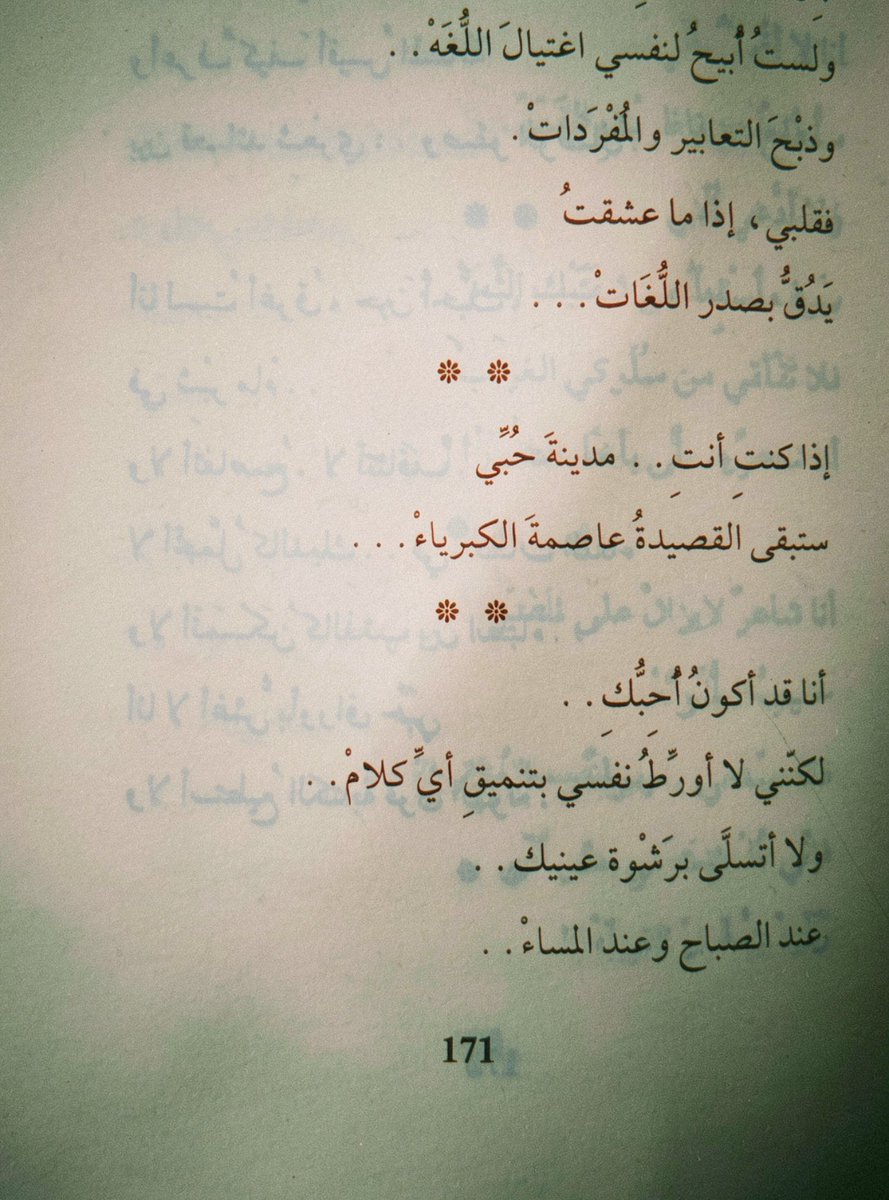 ولستُ أُبيحُ لنفسي اغتيالَ اللُّغَهْ. .
وذبْحَ التعابير والمُفْرَدَاتْ.
فقلبي، إذا ما عشقتُ
يَدُقُّ بصدر اللُّغَاتْ. . .
إذا كنتِ أنتِ. . مدينةَ حُبِّي
ستبقى القصيدةُ عاصمةَ الكبرياءْ. . .
أنا قد أكونُ أُحبُّكِ. .
لكنّني لا أورِّطُ نفسي بتنميقِ أيِّ كلامْ. .
ولا أتسلَّى برَشْوة عينيك. .
عند الصباح وعند المساءْ. .
171